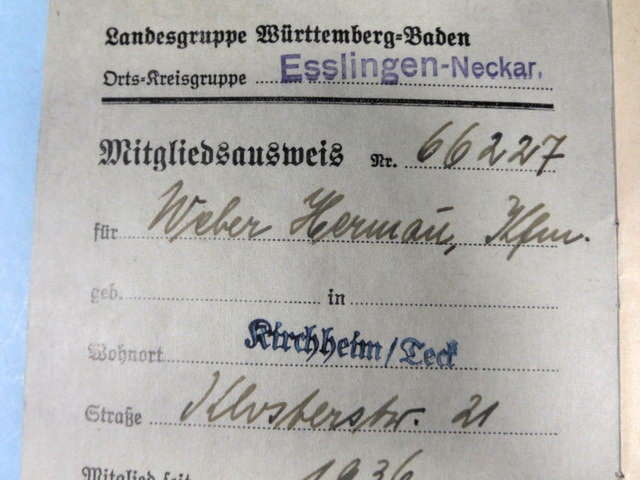 Landesgruppe Württemberg-Baden
Orts-Kreisgruppe Esslingen-Neckar.
Mitgliedsausweis Nr. 66227
für Weber Hermañ, Kfm.
geb. in
Wohnort Kirchheim/Teck
Straße Klosterstr. 21
Mitglied seit 1936